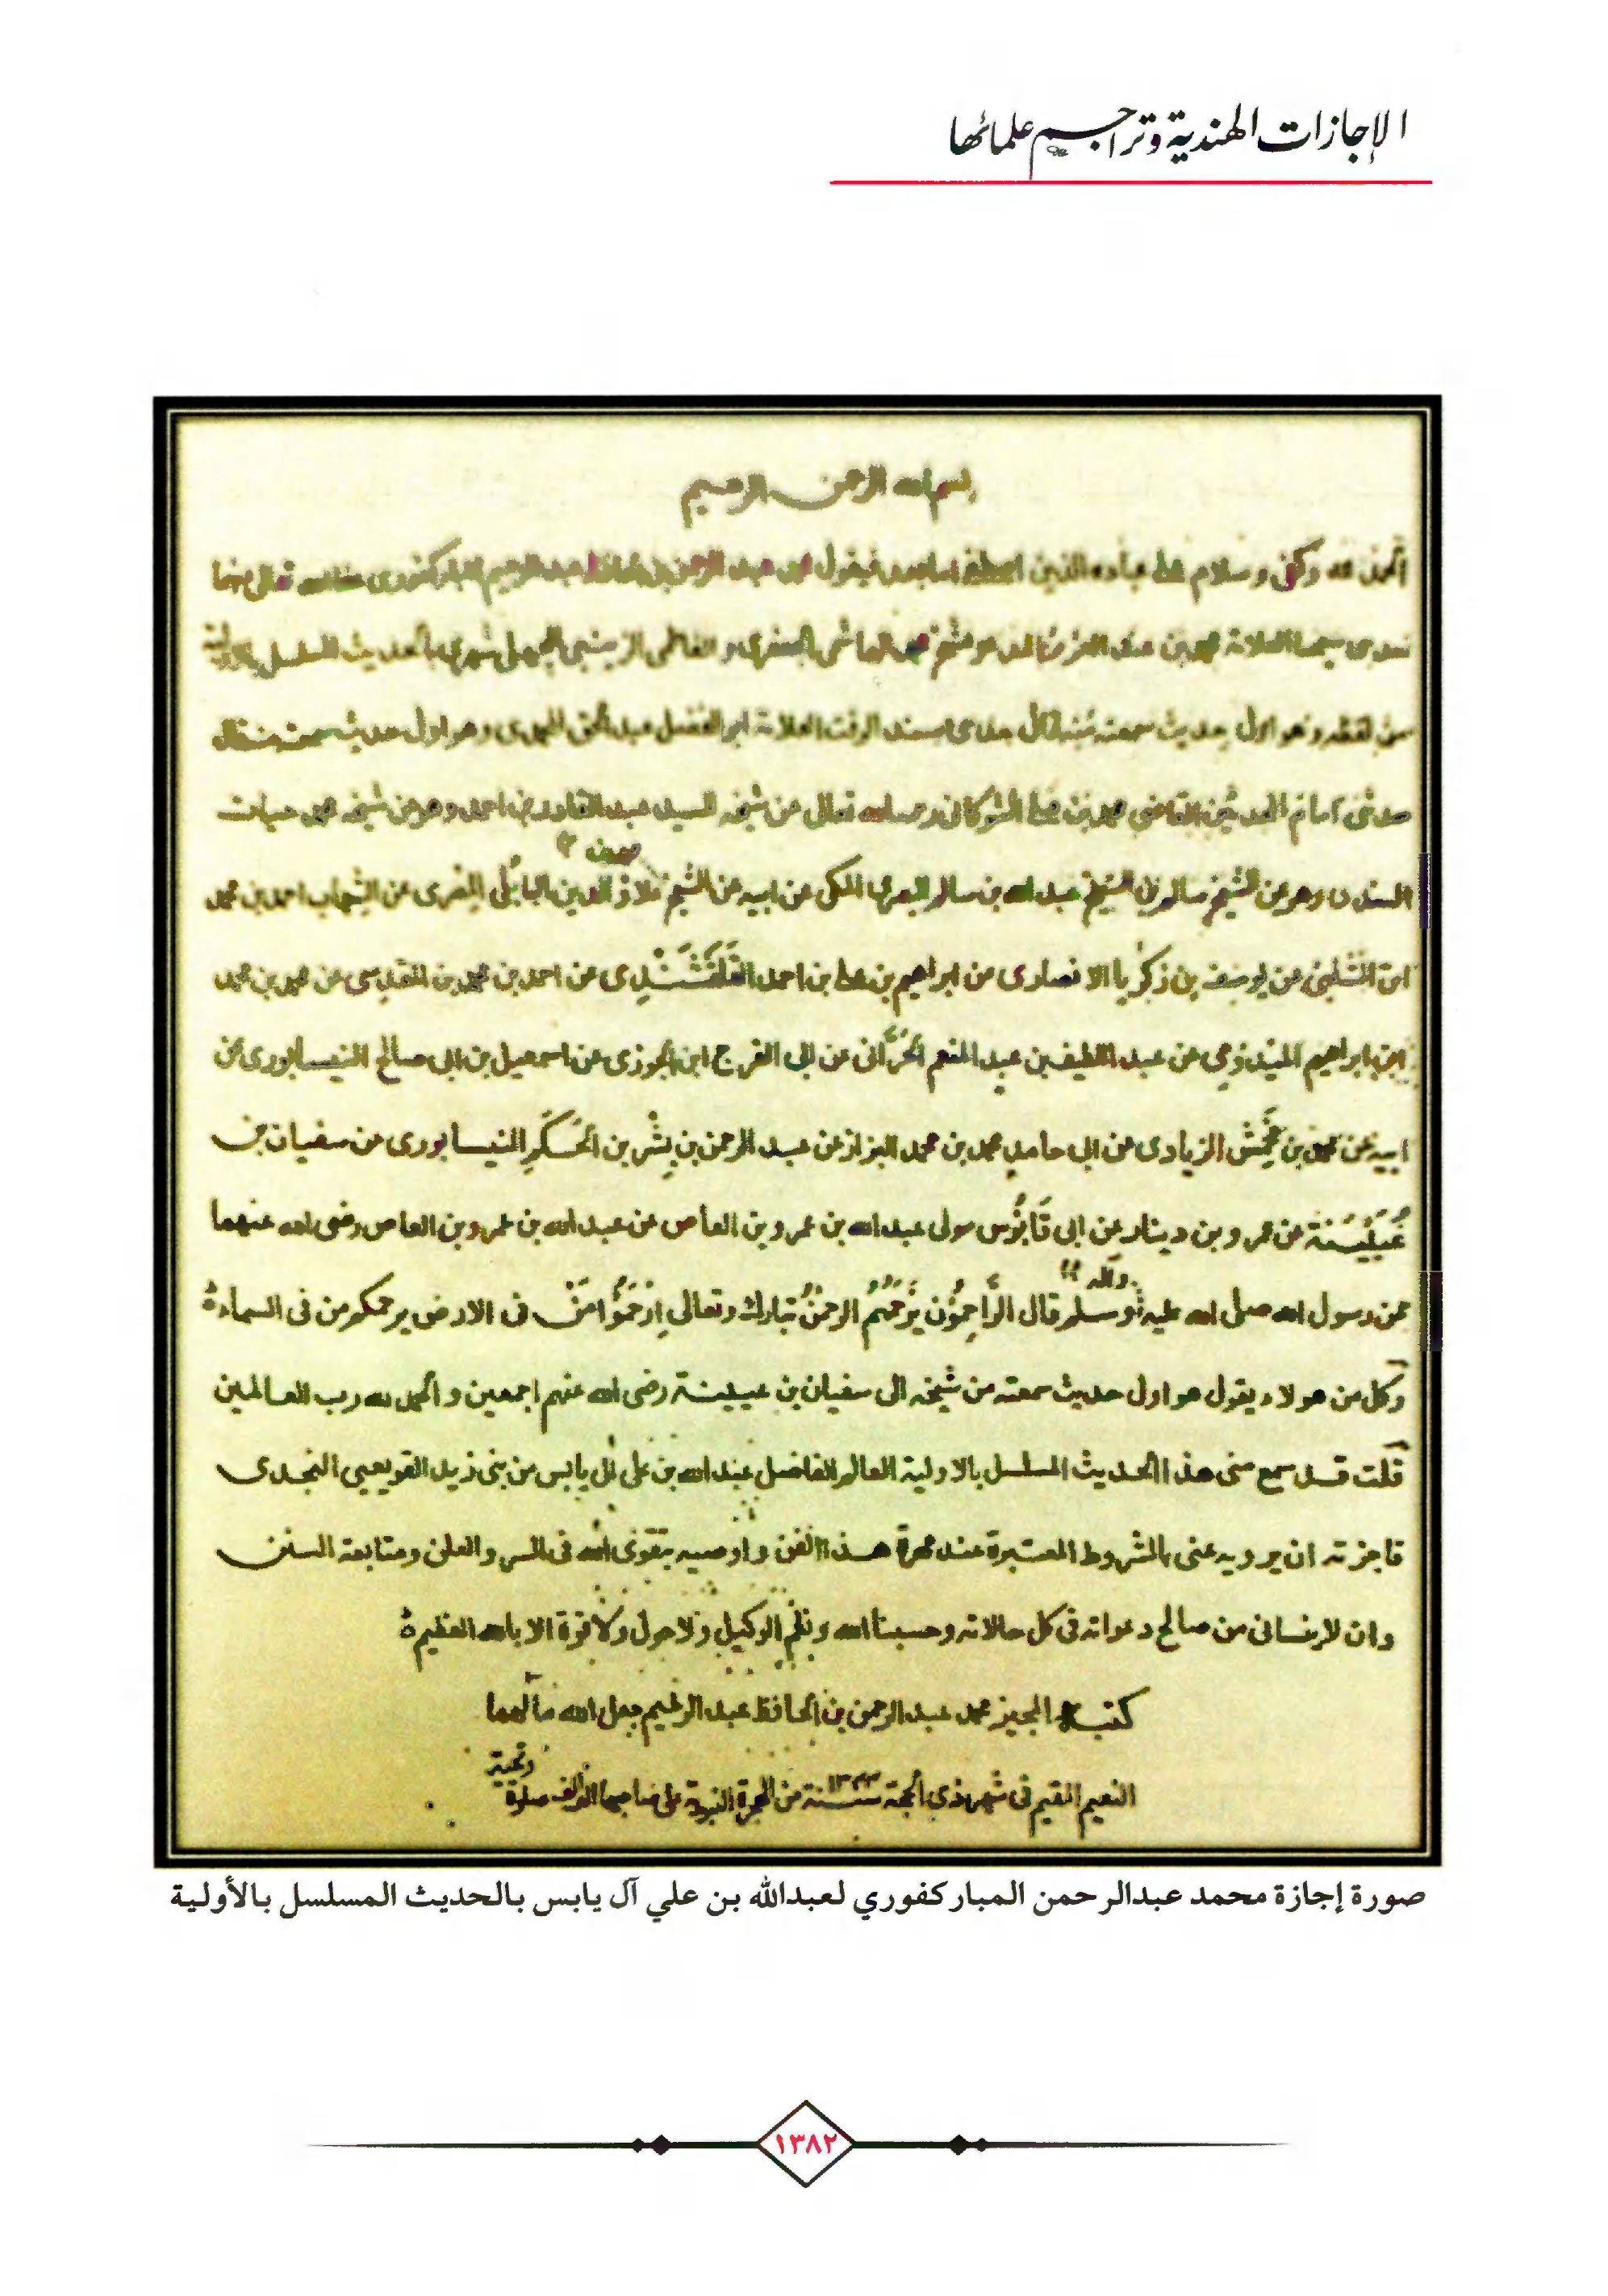 الإجازات الهندية وتراجم علمائها
بسم الله الرحمن الرحيم
الحمد لله وكفى وسلام على عباده الذين اصطفى اما بعد فيقول محمد عبد الرحمن بن الحافظ عبد الرحيم المباركفورى عفا الله تعالى عنهما
محمد بن عبد العزيز المدعو بشيخ محمد الهاشمى الجعفرى و الفاطمى الزينبى المجهلى شهرى بالحديث المسلسل بالاولية
من لفظه وهو اول حديث سمعته منه قال حدثنى مسند الوقت العلامة ابو الفضل عبد الحق المحمدى وهو اول حديث سمعته منه قال
حدثنى امام المحدثين القاضى محمد بن على الشوكانى رحمه الله تعالى عن شيخه السيد عبد القادر بن احمد وهو عن شيخه محمد حيات
السندى وهو عن الشيخ سالم بن الشيخ عبد الله بن سالم البصرى المكى عن ابيه عن الشيخ علاؤ الدين البابلى المصرى عن الشهاب احمد بن محمد
ابن الشلبى عن يوسف بن زكريا الانصارى عن ابراهيم بن على بن احمد القلقشندى عن احمد بن محمد بن المقدسى عن محمد بن محمد
ابن ابراهيم الميدومى عن عبد اللطيف بن عبد المنعم الحرانى عن ابى الفرج ابن الجوزى عن اسمعيل بن ابى صالح النيسابورى عن
ابيه عن محمد بن محمش الزيادى عن ابى حامد محمد بن محمد البزاز عن عبد الرحمن بن بشر بن الحكم النيسابورى عن سفيان بن
عيينة عن عمرو بن دينار عن ابى قابوس مولى عبد الله بن عمرو بن العاص عن عبد الله بن عمرو بن العاص رضى الله عنهما
عن رسول الله صلى الله عليه وآله وسلم قال الراحمون يرحمهم الرحمن تبارك وتعالى ارحموا من فى الارض يرحمكم من فى السماء
وكل من هولاء يقول هو اول حديث سمعته من شيخه الى سفيان بن عيينة رضى الله عنهم اجمعين والحمد لله رب العالمين
قلت قد سمع منى هذا الحديث المسلسل بالاولية العالم الفاضل عبد الله بن على آل يابس من بنى زيد القويعيى النجدى
فاجزته ان يرويه عنى بالشروط المعتبرة عند مهرة هذا الفن واوصيه بتقوى الله فى السر والعلن ومتابعة السنن
وان لا ينسانى من صالح دعواته فى كل حالاته وحسبنا الله ونعم الوكيل ولا حول ولا قوة الا بالله العظيم
كتبه المجيز محمد عبد الرحمن بن الحافظ عبد الرحيم جعل الله مآلهما
النعيم المقيم فى شهر ذى الحجة سنة ١٣٣٣ من الهجرة النبوية على صاحبها الف الف صلوة وتحية
صورة إجازة محمد عبدالرحمن المباركفوري لعبدالله بن علي آل يابس بالحديث المسلسل بالأولية
١٣٨٢